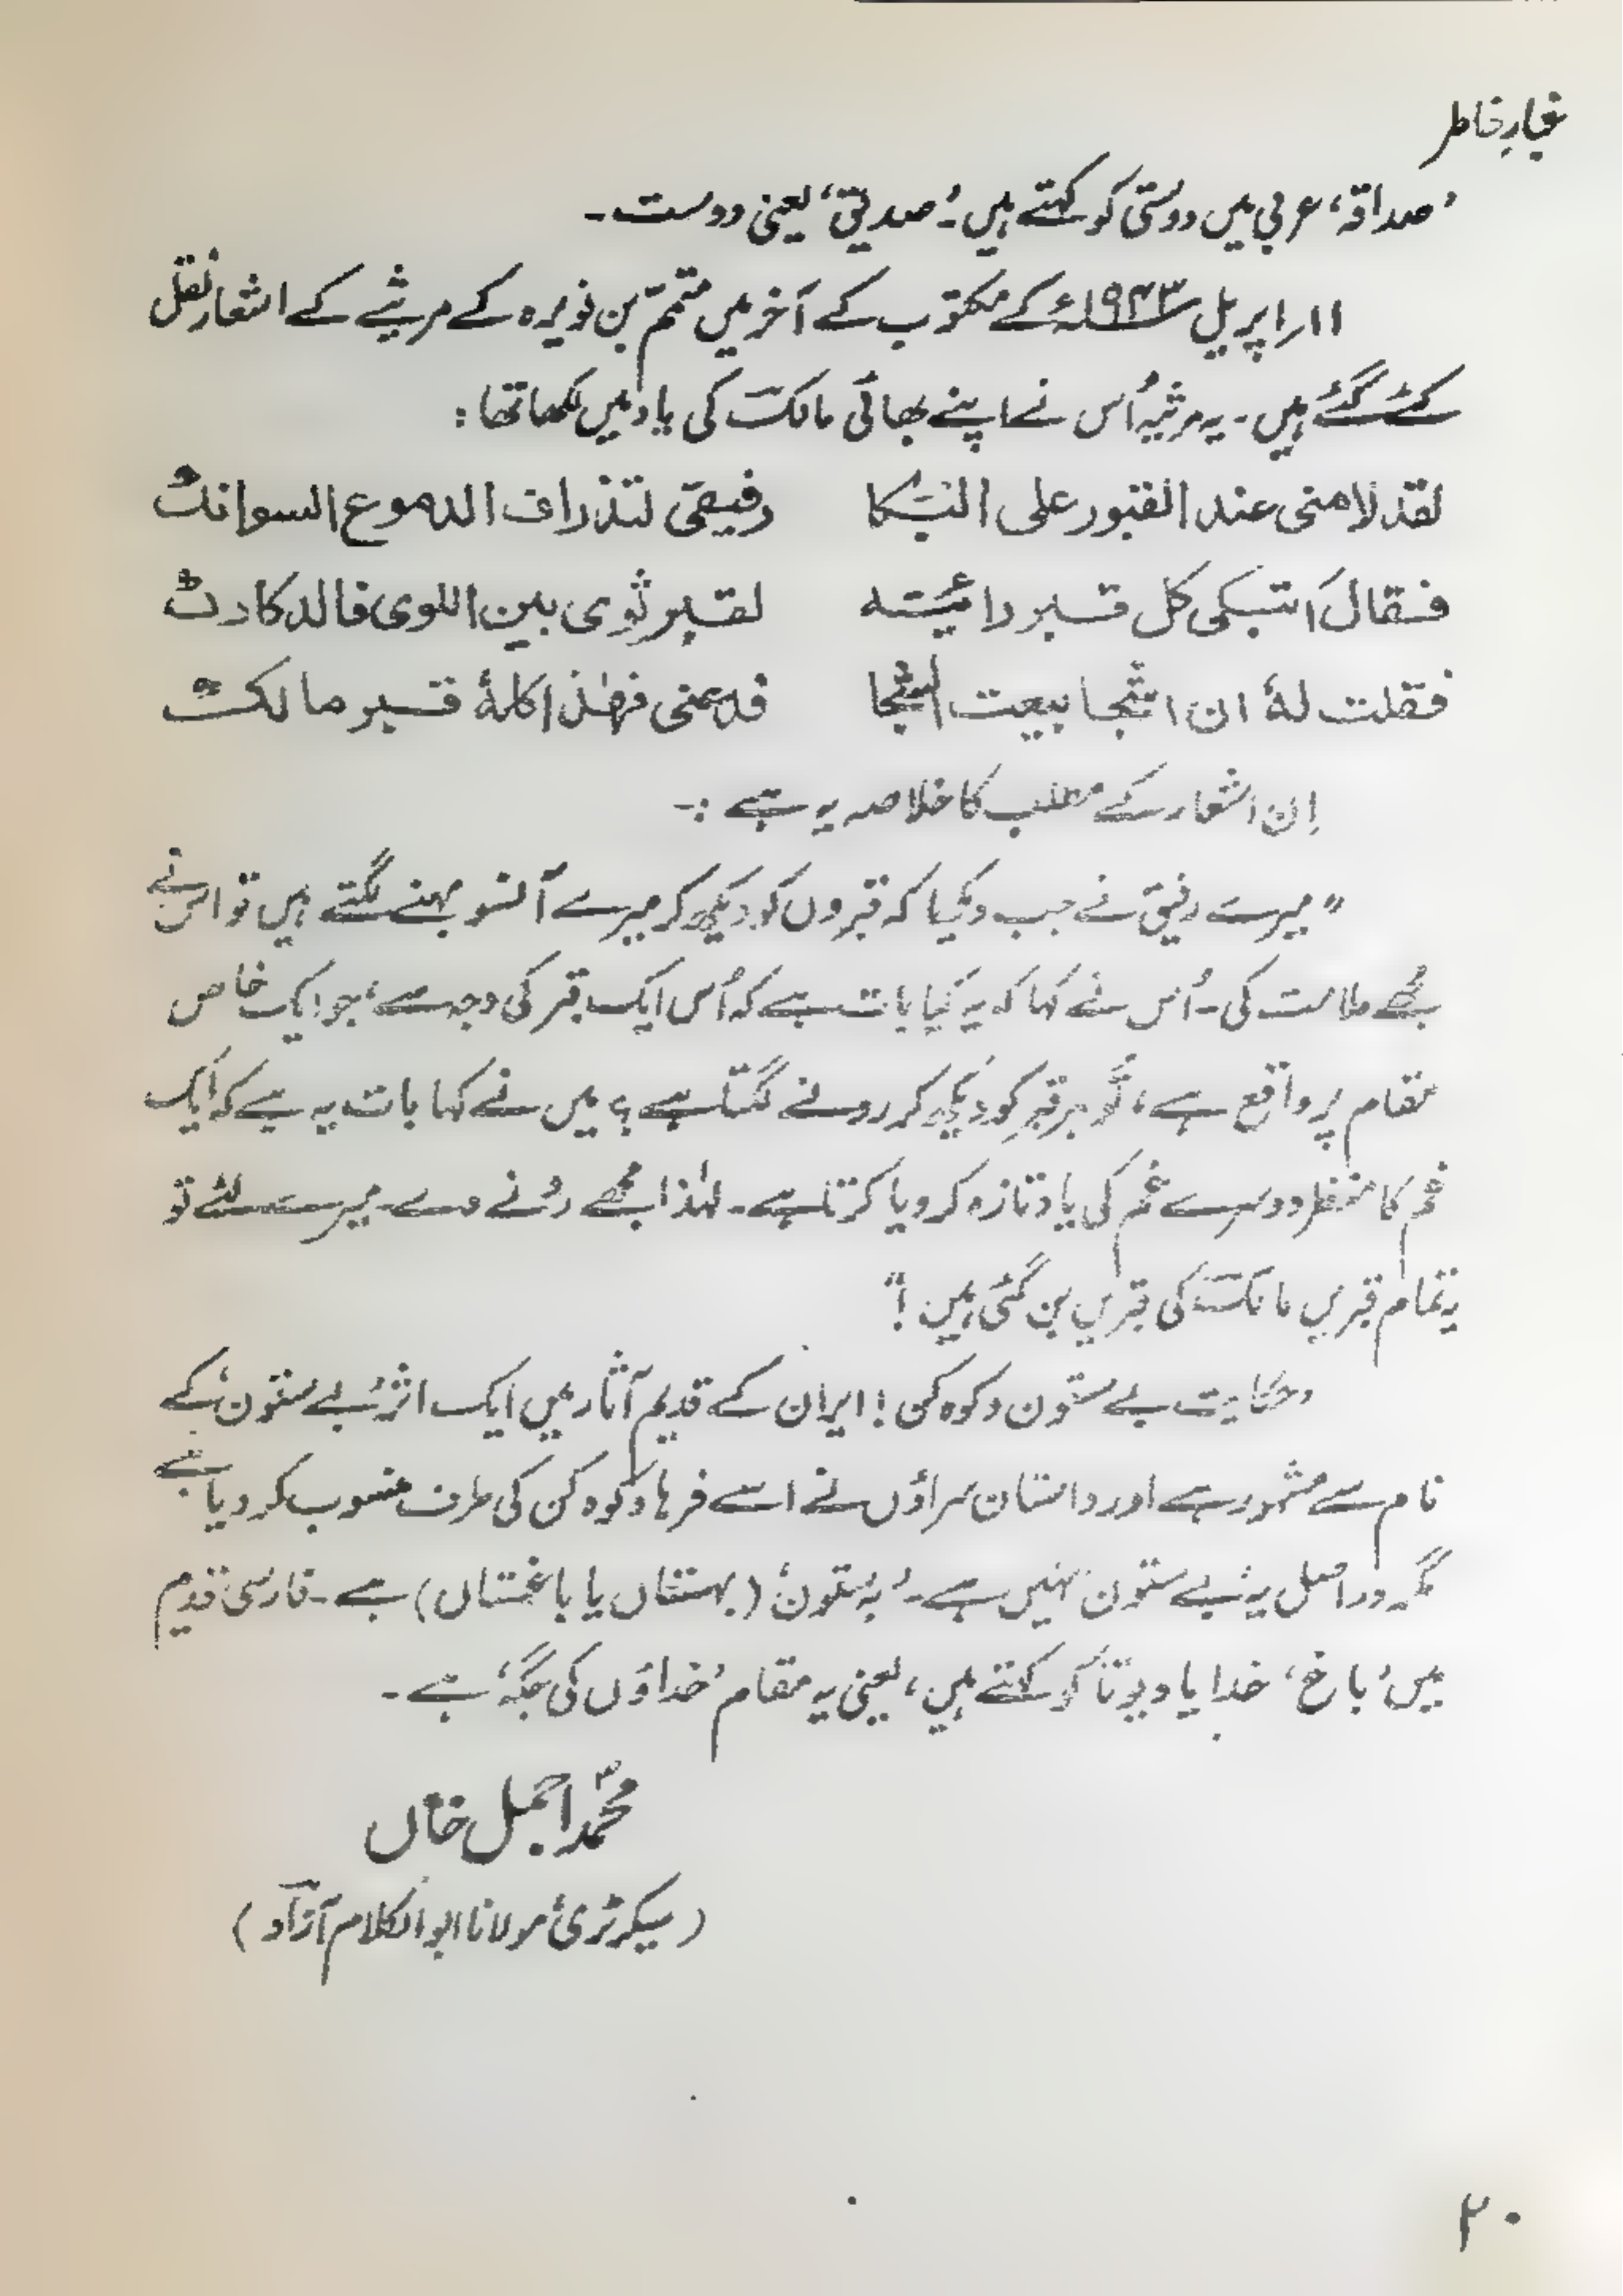 غبارِ خاطر
’صداقہ‘ عربی میں دوستی کو کہتے ہیں۔ ’صدیق‘ یعنی دوست۔
۱۱؍اپریل ۱۹۴۳ء کے مکتوب کے آخر میں متمّم بن نویرہ کے مرثیے کے اشعار نقل
کئے گئے ہیں۔ یہ مرثیہ اُس نے اپنے بھائی مالک کی یاد میں لکھا تھا:
لقد لامنی عند القبور علی البُکا رفیقی لتذراف الدموع السوافک
فقال اَتبکی کل قبر رائیته لقبر ثوی بین اللوی فالدکادک
فقلت لهٗ ان اشجا یبعث الشجا فدعنی فهٰذا کلهٗ قبر مالک
اِن اشعار کے مطلب کا خلاصہ یہ ہے :-
”میرے رفیق نے جب دیکھا کہ قبروں کو دیکھ کر میرے آنسو بہنے لگتے ہیں تو اس نے
مجھے ملامت کی۔ اُس نے کہا کہ یہ کیا بات ہے کہ اُس ایک قبر کی وجہ سے، جو ایک خاص
مقام پر واقع ہے، تُو ہر قبر کو دیکھ کر رونے لگتا ہے؟ میں نے کہا بات یہ ہے کہ ایک
غم کا منظر دوسرے غم کی یاد تازہ کر دیا کرتا ہے۔ لہٰذا مجھے رونے دے۔ میرے لئے تو
یہ تمام قبریں مالک کی قبریں بن گئی ہیں!“
’حکایت بے ستون و کوہ کن! ایران کے قدیم آثار میں ایک اثر ’بے ستون‘ کے
نام سے مشہور ہے اور داستان سراؤں نے اسے فرہاد کوہ کن کی طرف منسوب کر دیا ہے
مگر دراصل یہ ’بے ستون‘ نہیں ہے۔ ’بہ ستون‘ (بہستاں یا باغستاں) ہے۔ فارسی قدیم
میں ’باغ‘ خدا یا دیوتا کو کہتے ہیں، یعنی یہ مقام ’خداؤں کی جگہ‘ ہے۔
محمّد اجمل خاں
(سیکرٹریٔ مولانا ابوالکلام آزاد)
۲۰